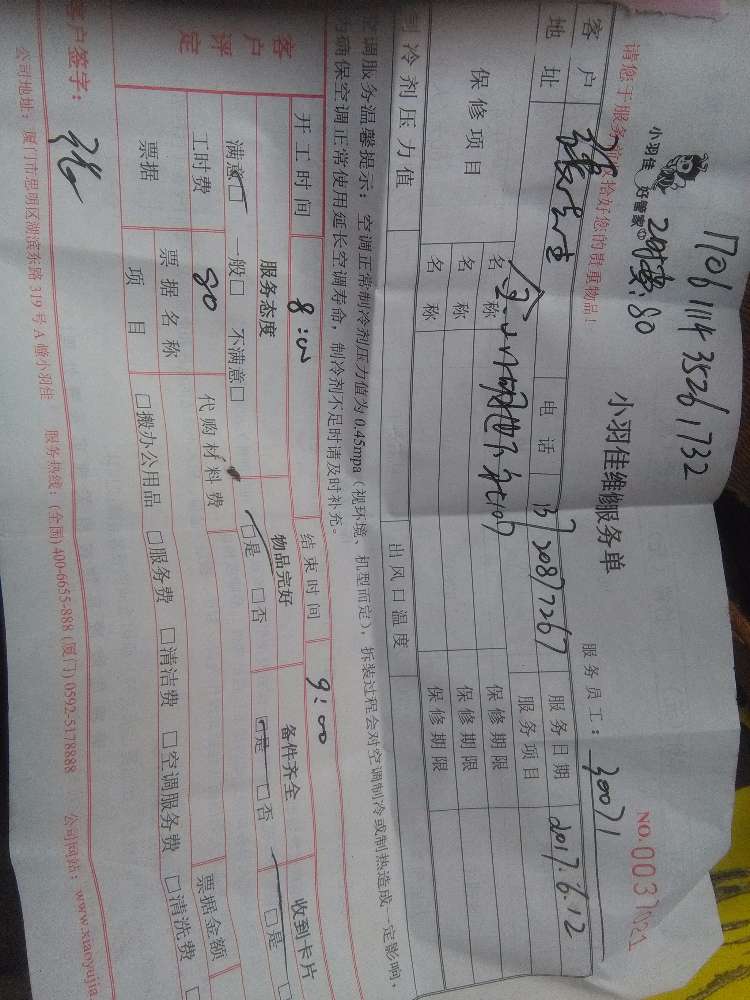 1706111435261732
小羽佳 好管家
工时费:80
请您于服务前收拾好您的贵重物品!
小羽佳维修服务单
服务员工: 30071
NO.0037021
客户 张先生 电话 13720877267 服务日期 2017.6.12
地址 服务项目
保修项目 名称 保修期限
名称 保修期限
名称 保修期限
制冷剂压力值 出风口温度
空调服务温馨提示: 空调正常制冷剂压力值为0.45mpa(视环境、机型而定), 拆装过程会对空调制冷或制热造成一定影响,
为确保空调正常使用延长空调寿命, 制冷剂不足时请及时补充。
开工时间 8:00 结束时间 9:00
客户评定 服务态度 物品完好 备件齐全 收到卡片
满意□ 一般□ 不满意□ □是 □否 □是 □否 □是
工时费 80 代购材料费 票据金额
票据 票据名称 □搬办公用品 □服务费 □清洁费 □空调服务费 □清洗费
项目
客户签字: 张
公司地址: 厦门市思明区湖滨东路319号A幢小羽佳 服务热线: (全国)400-6655-888 (厦门)0592-5178888 公司网站: www.xiaoyujia